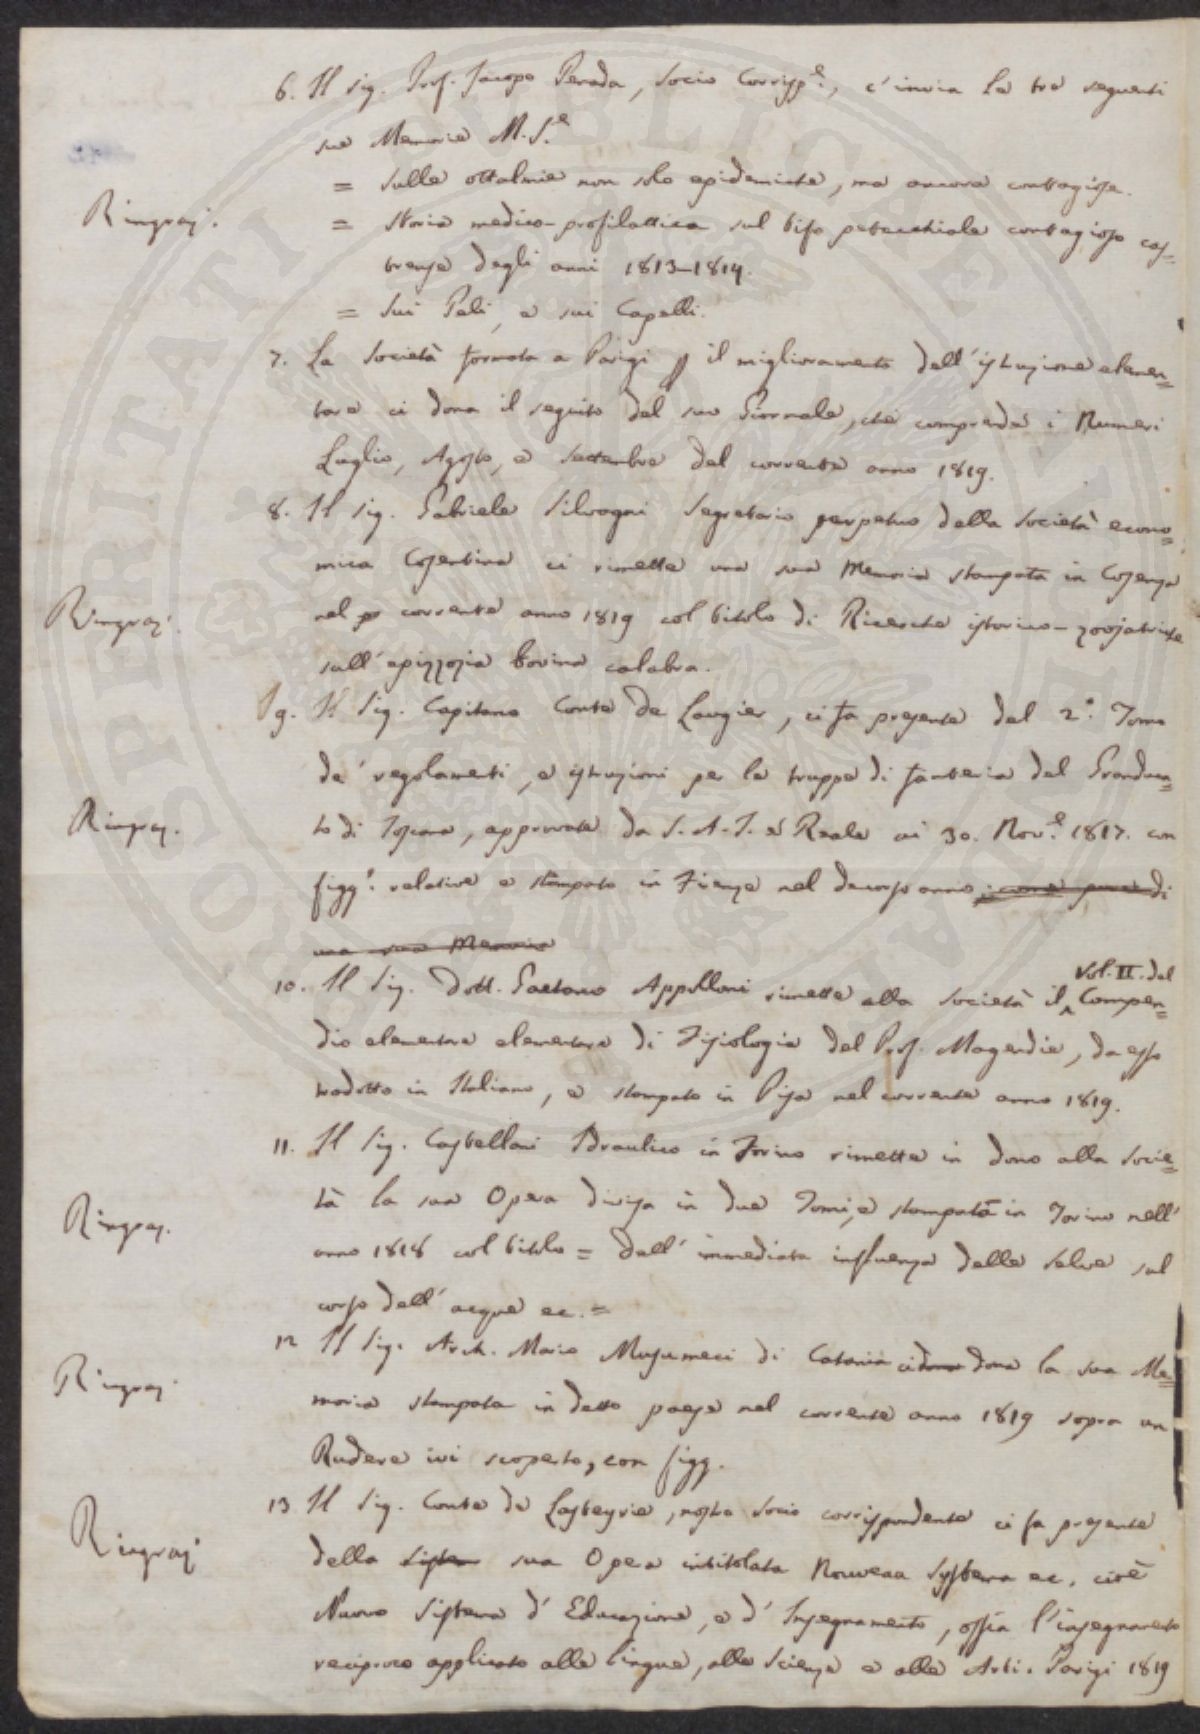 6. Il Sig. Prof. Jacopo Penada, Socio Corrisp.e, c'invia le tre seguenti
sue Memorie M.S.e
= Sulle ottalmie non solo epidemiche, ma ancora contagiose.
Ringraz.
= Storia medico-profilattica sul tifo petecchiale contagioso cas=
trense degli anni 1813-1814.
= Sui Peli, e sui Capelli.
7. La Società formata a Parigi p il miglioramento dell'istruzione elemen=
tare ci dona il seguito del suo Giornale, che comprende i Numeri
Luglio, Agosto, e Settembre del corrente anno 1819.
8. Il Sig. Gabriele Silvagni Segretario perpetuo della Società econo=
mica Cosentina ci rimette una sua Memoria stampata in Cosenza
Ringraz.
nel corrente anno 1819 col titolo di Ricerche istorico-zoojatriche
sull'epizzozia bovina calabra.
9. Il Sig. Capitano Conte de Laugier, ci fa presente del 2.o Tomo
de' regolamenti, e istruzioni per le truppe di fanteria del Granduca=
Ringraz.
to di Toscana, approvate da S. A. I. e Reale ai 30. Nov.e 1817. con
figg.e relative e stampato in Firenze nel decorso anno; come pure di
una sua Memoria
10. Il Sig. Dott. Gaetano Appolloni rimette alla Società il Vol. II. del Compen=
dio elementare elementare di Fisiologia del Prof. Magendie, da esso
tradotto in Italiano, e stampato in Pisa nel corrente anno 1819.
11. Il Sig. Castellani Idraulico in Torino rimette in dono alla Socie=
tà la sua Opera divisa in due Tomi, e stampata in Torino nell'
Ringraz.
anno 1818 col titolo = Dell'immediata influenza delle Selve sul
corso dell'acque ec. =
12 Il Sig. Arch. Mario Musumeci di Catania ci dona dona la sua Me=
Ringraz.
moria stampata in detto paese nel corrente anno 1819 sopra un
Rudere ivi scoperto, con figg.
13. Il Sig. Conte de Lasteyrie, nostro Socio corrispondente ci fa presente
Ringraz.
della Sistem sua Opera intitolata Nouveau Systema ec. cioè
Nuovo Sistema d'Educazione, e d'Insegnamento, ossia l'insegnamento
reciproco applicato alle lingue, alle Scienze e alle Arti. Parigi 1819
PROSPERITATI PUBLICAE